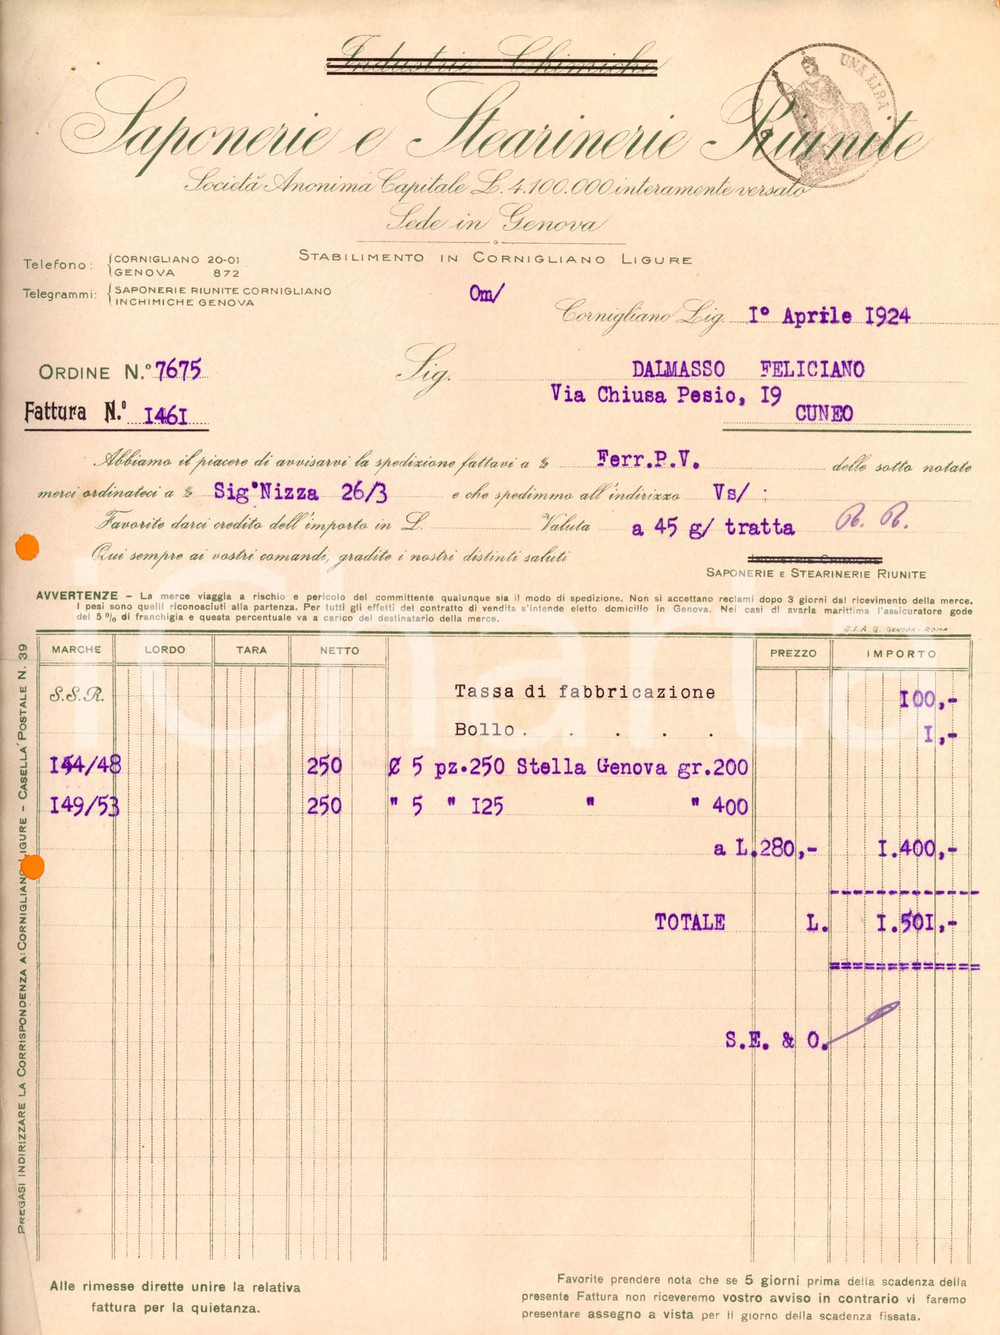 Industrie Chimiche
Saponerie e Stearinerie Riunite
UNA LIRA
Società Anonima Capitale L. 4.100.000 interamente versato
Sede in Genova
Stabilimento in Cornigliano Ligure
Telefono: CORNIGLIANO 20-01
GENOVA 872
Telegrammi: SAPONERIE RIUNITE CORNIGLIANO
INCHIMICHE GENOVA
Om/
Cornigliano Lig. I° Aprile I924
ORDINE N.° 7675
Sig. DALMASSO FELICIANO
Via Chiusa Pesio, I9
CUNEO
Fattura N.° I46I
Abbiamo il piacere di avvisarvi la spedizione fattavi a % Ferr.P.V. delle sotto notate
merci ordinateci a % Sig'Nizza 26/3 e che spedimmo all'indirizzo Vs/ :
Favorite darci credito dell'importo in L. Valuta a 45 g/ tratta R. R.
Qui sempre ai vostri comandi, gradite i nostri distinti saluti
INDUSTRIE CHIMICHE
SAPONERIE E STEARINERIE RIUNITE
AVVERTENZE - La merce viaggia a rischio e pericolo del committente qualunque sia il modo di spedizione. Non si accettano reclami dopo 3 giorni dal ricevimento della merce.
I pesi sono quelli riconosciuti alla partenza. Per tutti gli effetti del contratto di vendita s'intende eletto domicilio in Genova. Nei casi di avaria marittima l'assicuratore gode
del 5 % di franchigia e questa percentuale va a carico del destinatario della merce.
G.I.A.G. GENOVA - ROMA
MARCHE LORDO TARA NETTO PREZZO IMPORTO
S.S.R. Tassa di fabbricazione I00,-
Bollo. . . . . . I,-
I44/48 250 Ø 5 pz.250 Stella Genova gr.200
I49/53 250 " 5 " I25 " " 400
a L.280,- I.400,-
TOTALE L. I.50I,-
S.E. & O.
PREGASI INDIRIZZARE LA CORRISPONDENZA A: CORNIGLIANO LIGURE - CASELLA POSTALE N. 39
Alle rimesse dirette unire la relativa
fattura per la quietanza.
Favorite prendere nota che se 5 giorni prima della scadenza della
presente Fattura non riceveremo vostro avviso in contrario vi faremo
presentare assegno a vista per il giorno della scadenza fissata.
iCharta